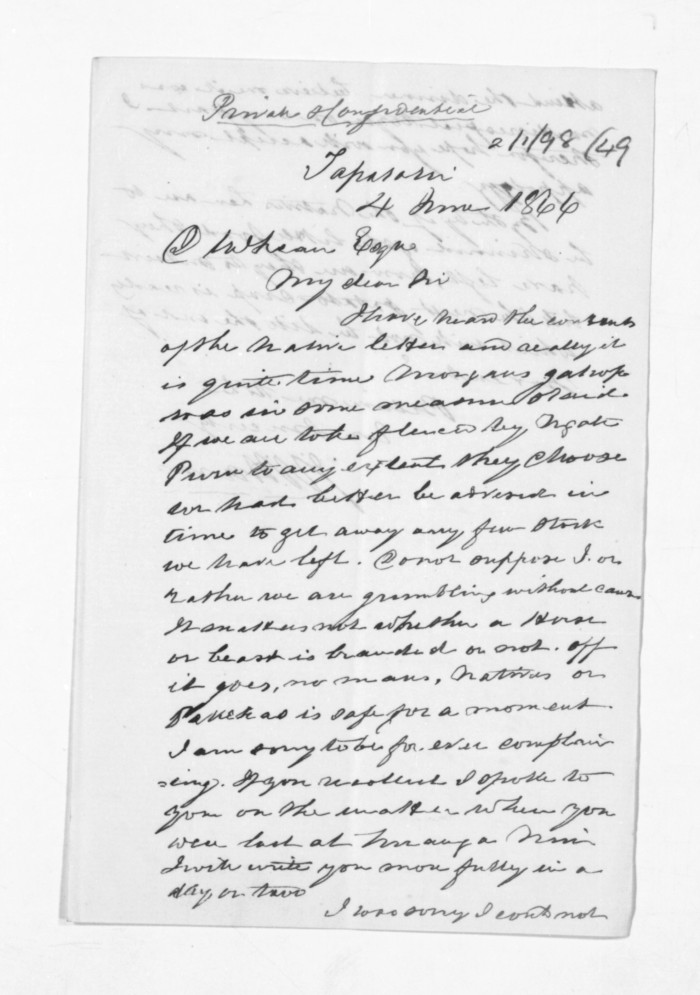 Private & Confidential
2/1/98 (49
4 June 1866
D Esqre
My dear Sir
I have heard the contents
of the Native letter and really it
is quite time Morgans
was in some measure
If we are to be fleeced by
to any extent they choose
we had better be advised in
time to get away any few stock
we have left. Do not suppose I. or
rather we are grumbling without cause
It matters not whether a Horse
or beast is branded or not. off
it goes, no mans, Natives or
Pakehas is safe for a moment.
I am sorry to be for ever complain
=ing. If you recollect I spoke to
you on the matter when you
were last at
I will write you more fully in a
day or two
I was sorry I could not